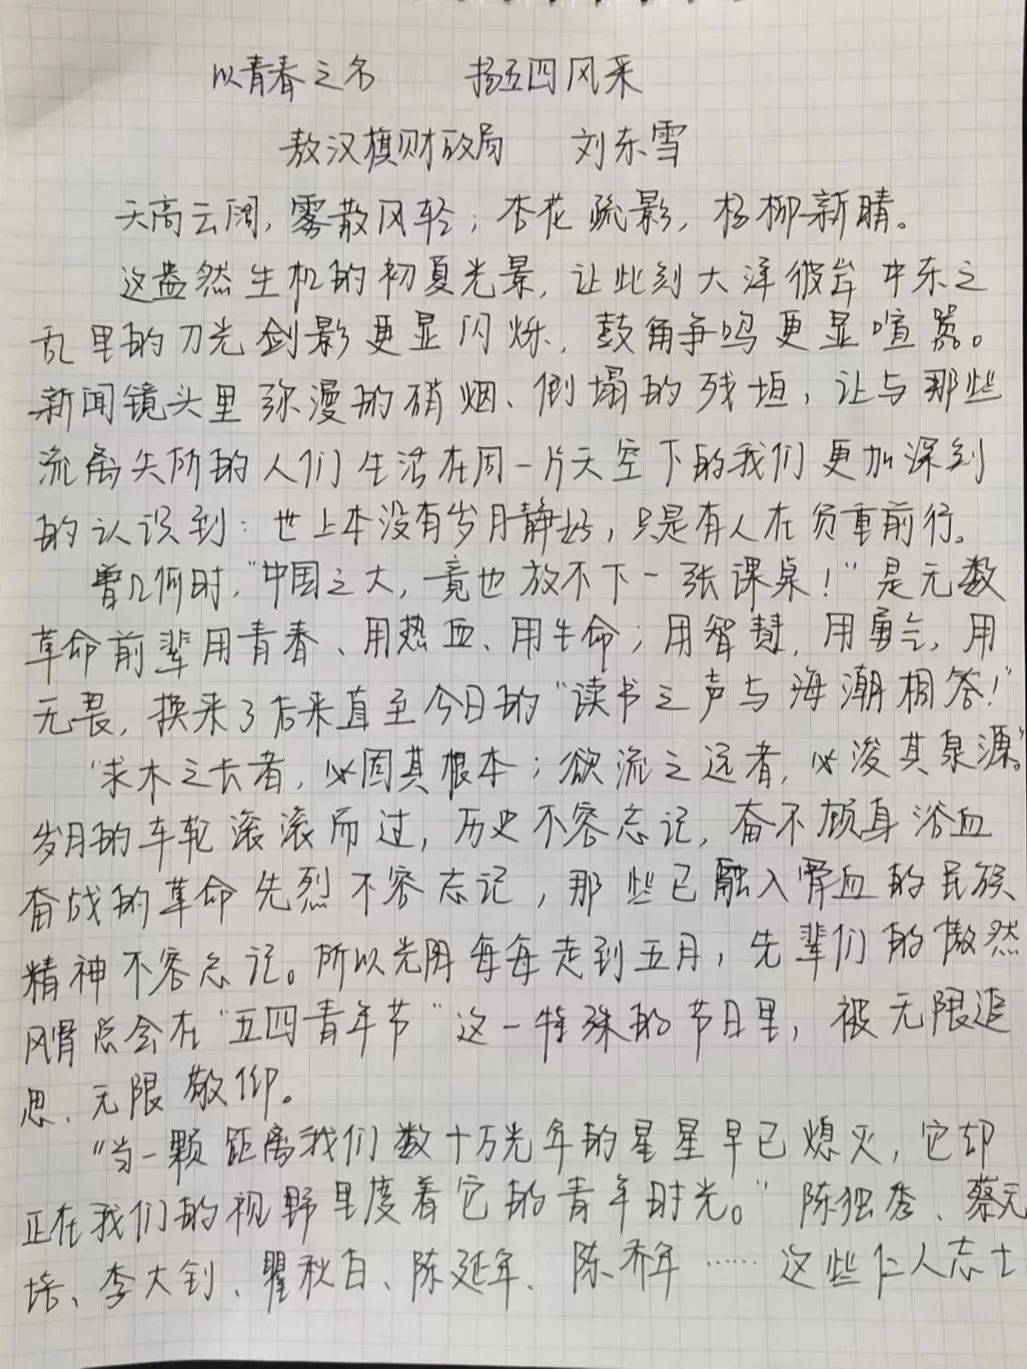 以青春之名 扬五四风采
敖汉旗财政局 刘东雪
天高云阔，雾散风轻；杏花疏影，杨柳新晴。
这盎然生机的初夏光景，让此刻大洋彼岸中东之
乱里的刀光剑影更显闪烁，鼓角争鸣更显喧嚣。
新闻镜头里弥漫的硝烟、倒塌的残垣，让与那些
流离失所的人们生活在同一片天空下的我们更加深刻
的认识到：世上本没有岁月静好，只是有人在负重前行。
曾几何时，“中国之大，竟也放不下一张课桌！”是无数
革命前辈用青春、用热血、用生命；用智慧、用勇气、用
无畏，换来了后来直至今日的“读书之声与海潮相答！”
“求木之长者，必固其根本；欲流之远者，必浚其泉源。”
岁月的车轮滚滚而过，历史不容忘记，奋不顾身浴血
奋战的革命先烈不容忘记，那些已融入骨血的民族
精神不容忘记。所以光阴每每走到五月，先辈们的傲然
风骨总会在“五四青年节”这一特殊的节日里，被无限追
思、无限敬仰。
“当一颗距离我们数十万光年的星星早已熄灭，它却
正在我们的视野里度着它的青年时光。”陈独秀、蔡元
培、李大钊、瞿秋白、陈延年、陈乔年……这些仁人志士